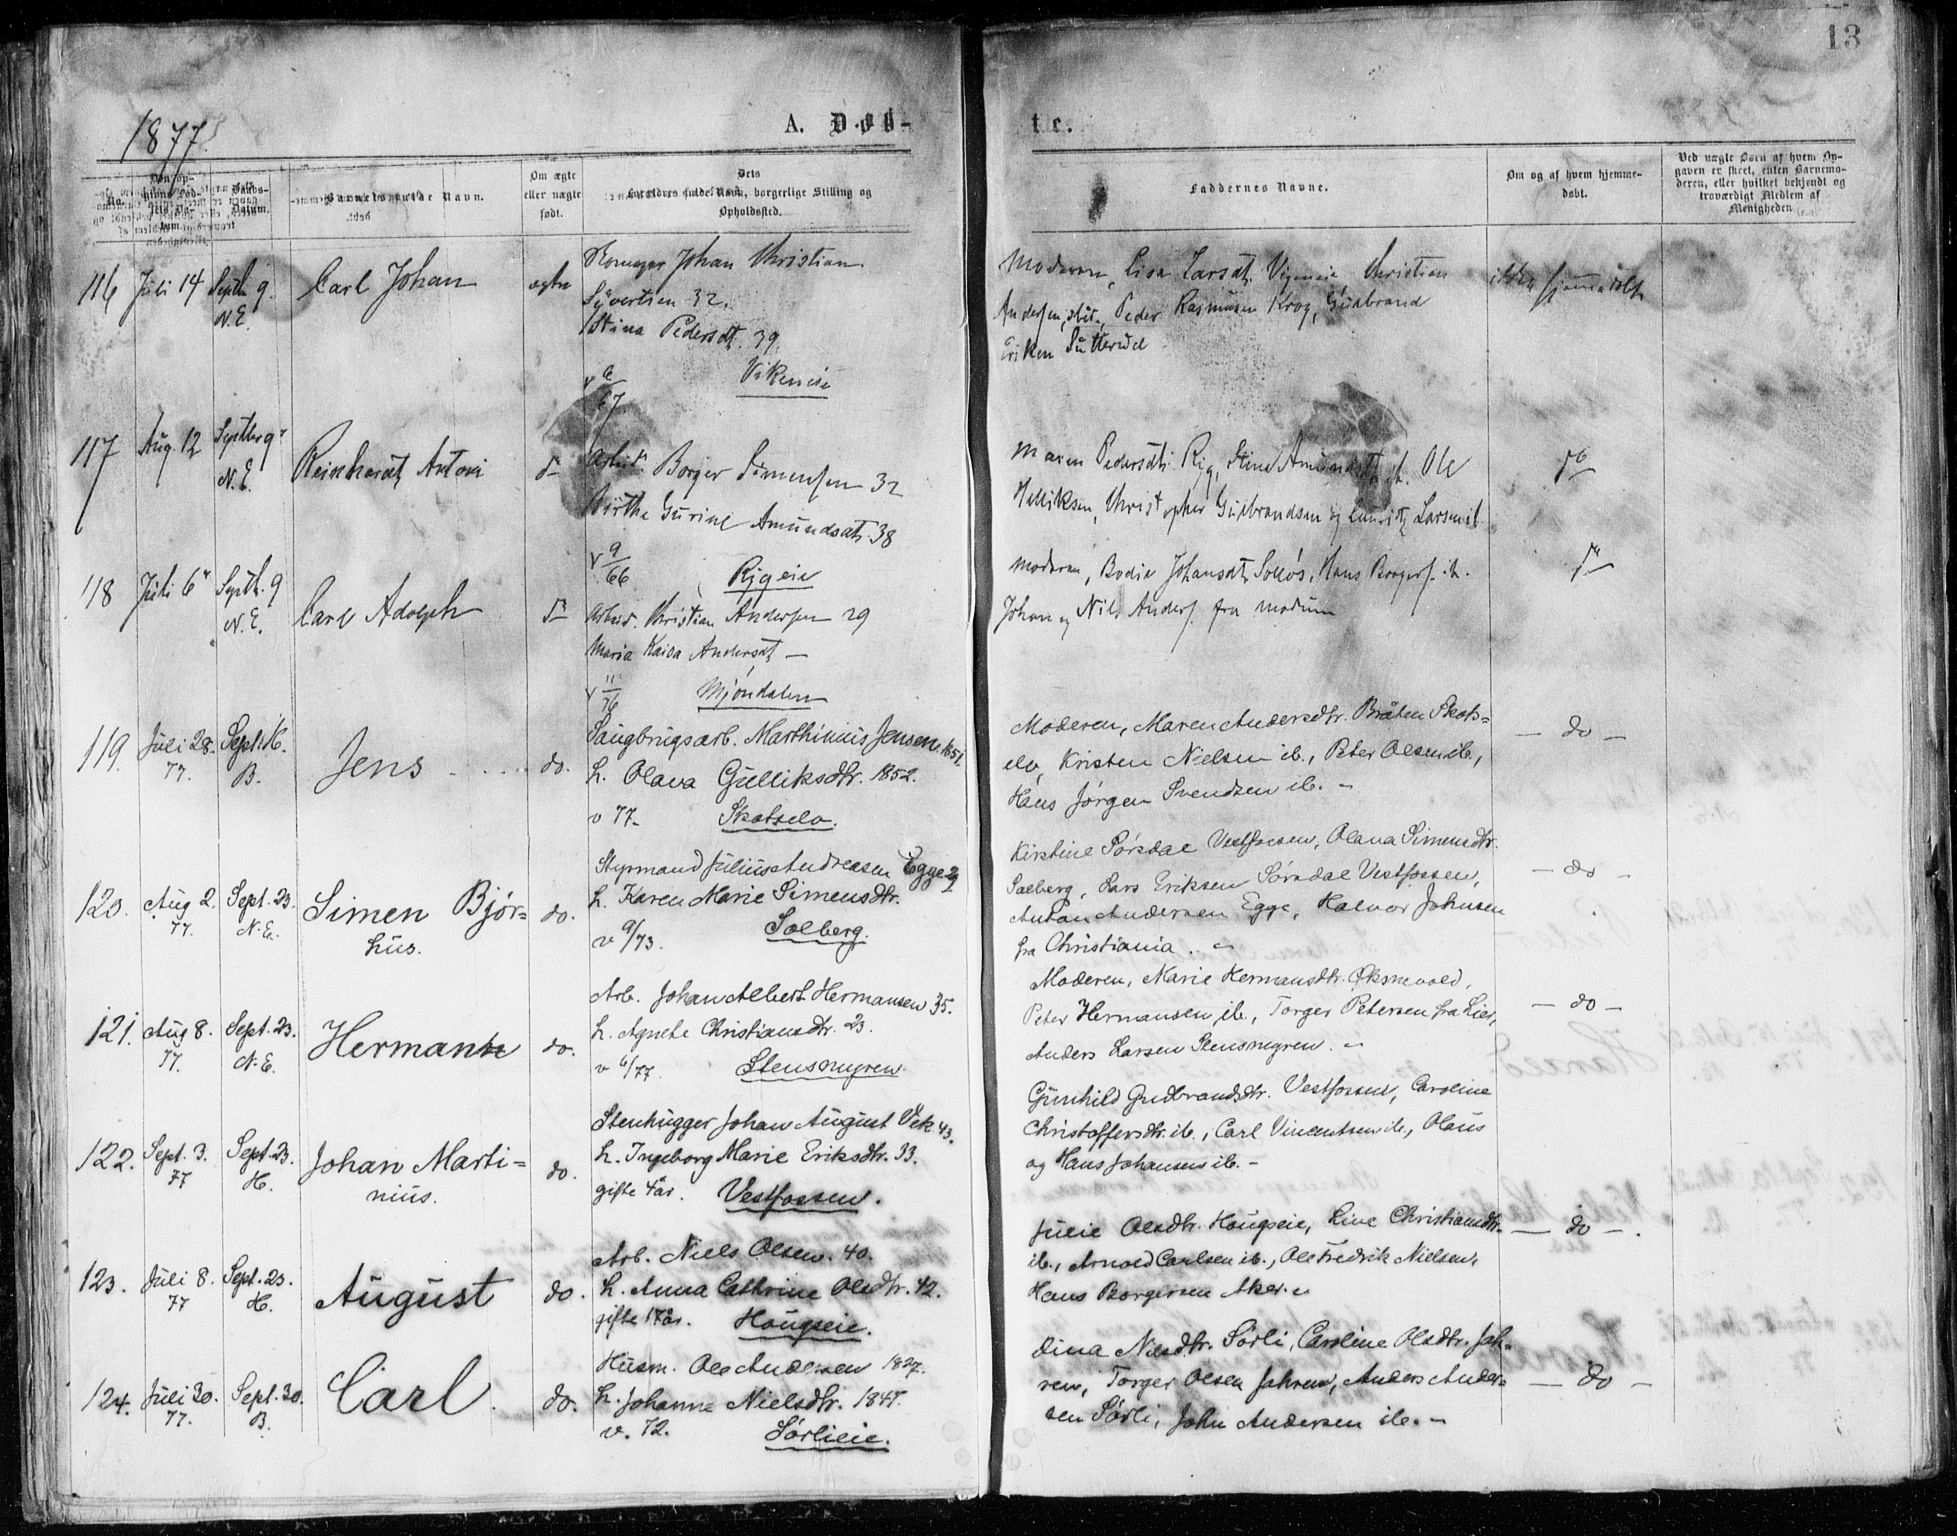 13
1877
A. Døb-
te.
No.
Daabs-
Datum.
Barnets fulde Navn.
Om ægte
eller uægte
født.
Dets
Forældres fulde Navn, borgerlige Stilling og
Opholdssted.
Faddernes Navne.
Om og af hvem hjemme-
døbt.
Ved uægte Børn af hvem Op-
gaven er skeet, enten Barnemo-
deren, eller hvilket bekjendt og
troværdigt Medlem af
Menigheden
116 Juli 14 Septbr 9
N. E.
Carl Johan
ægte
Skomager Johan Christian
Syvertsen 32.
Stina Pedersdt. 39
v 6/67
Vikeneie
Moderen, Lisa Larsdt. Christian
Andersen, Peder Rasmusen Krog, Gudbrand
Eriksen Sutterud
ikke hjemmedøbt
117 Aug. 12 Septber 9
N. E.
Reinhardt Anton
do
Arbeid. Borger Simensen 32
Birthe Gurine Amundsdt. 38
v 9/66
Rygeie
Maren Pedersdt. Ryg, Stine Amundsdt. ib. Ole
Helliksen, Christopher Gudbrandsen og Lauritz Larsen ib.
do
118 Juli 6 Septb. 9
N. E.
Carl Adolph
do
Arbeid. Christian Andersen 29
Maria Kaisa Andersdt. —
v 11/76
Mjøndalen
Moderen, Bodie Johansdt. Solløs, Hans Borgers. ib.
Johan og Nils Anders. fra Modum
do
119. Juli 28.
77.
Sept. 16.
B.
Jens
do.
Saugbrugsarb. Marthinius Jensen 1851.
h. Olava Gulliksdtr. 1852.
v 77. Skotselv.
Moderen, Maren Andersdtr. Bråten Skots=
elv, Kristen Nielsen ib., Peter Olsen ib.,
Hans Jørgen Svendsen ib. –
— do —
120. Aug 2.
77.
Sept. 23.
N. E.
Simen Bjør=
hus.
do.
Styrmand Julius Andreasen Egge 29
h. Karen Marie Simensdtr.
v 9/73. Solberg.
Kirstine Sørsdal Vestfossen, Olava Simensdtr.
Solberg, Lars Eriksen Sørsdal Vestfossen,
Anton Andersen Egge, Halvor Johnsen
fra Christiania. –
— do —
121. Aug 8.
77.
Sept. 23.
N. E.
Hermann
do.
Arb. Johan Albert Hermansen 35.
h. Agnete Christiansdtr. 23.
v 6/77. Stensmyren
Moderen, Marie Hermansdtr. Øksnevold,
Peter Hermansen ib., Torger Petersen fra Lier,
Anders Larsen Stensmyren. –
— do —
122. Sept. 3.
77
Sept. 23.
H.
Johan Marti=
nius.
do.
Stenhugger Johan August Vek. 43.
h. Ingeborg Marie Eriksdtr. 33.
gifte 4 år. Vestfossen.
Gunhild Gudbrandsdtr. Vestfossen, Caroline
Christoffersdtr. ib., Carl Vincentsen ib., Olaus
og Hans Johansens ib. –
123. Juli 8.
77
Sept. 23.
H.
August
do.
Arb. Niels Olsen. 40.
h. Anna Cathrine Olsdtr. 42.
gifte 17 år. Hougseie.
Julie Olsdtr. Hougseie, Line Christiansdtr.
ib., Arnold Carlsen ib., Ole Fredrik Nielsen,
Hans Borgersen Aker. –
— do —
124. Juli 30.
77.
Sept. 30.
B.
Carl.
do.
Husm. Ole Andersen 1827.
h. Johanne Nielsdtr. 1847.
v. 72. Sørlieie.
Dina Nilsdtr. Sørli, Caroline Olsdtr. Jah=
ren, Torger Olsen Jahren, Anders Ander=
sen Sørli, John Andersen ib. –
— do —